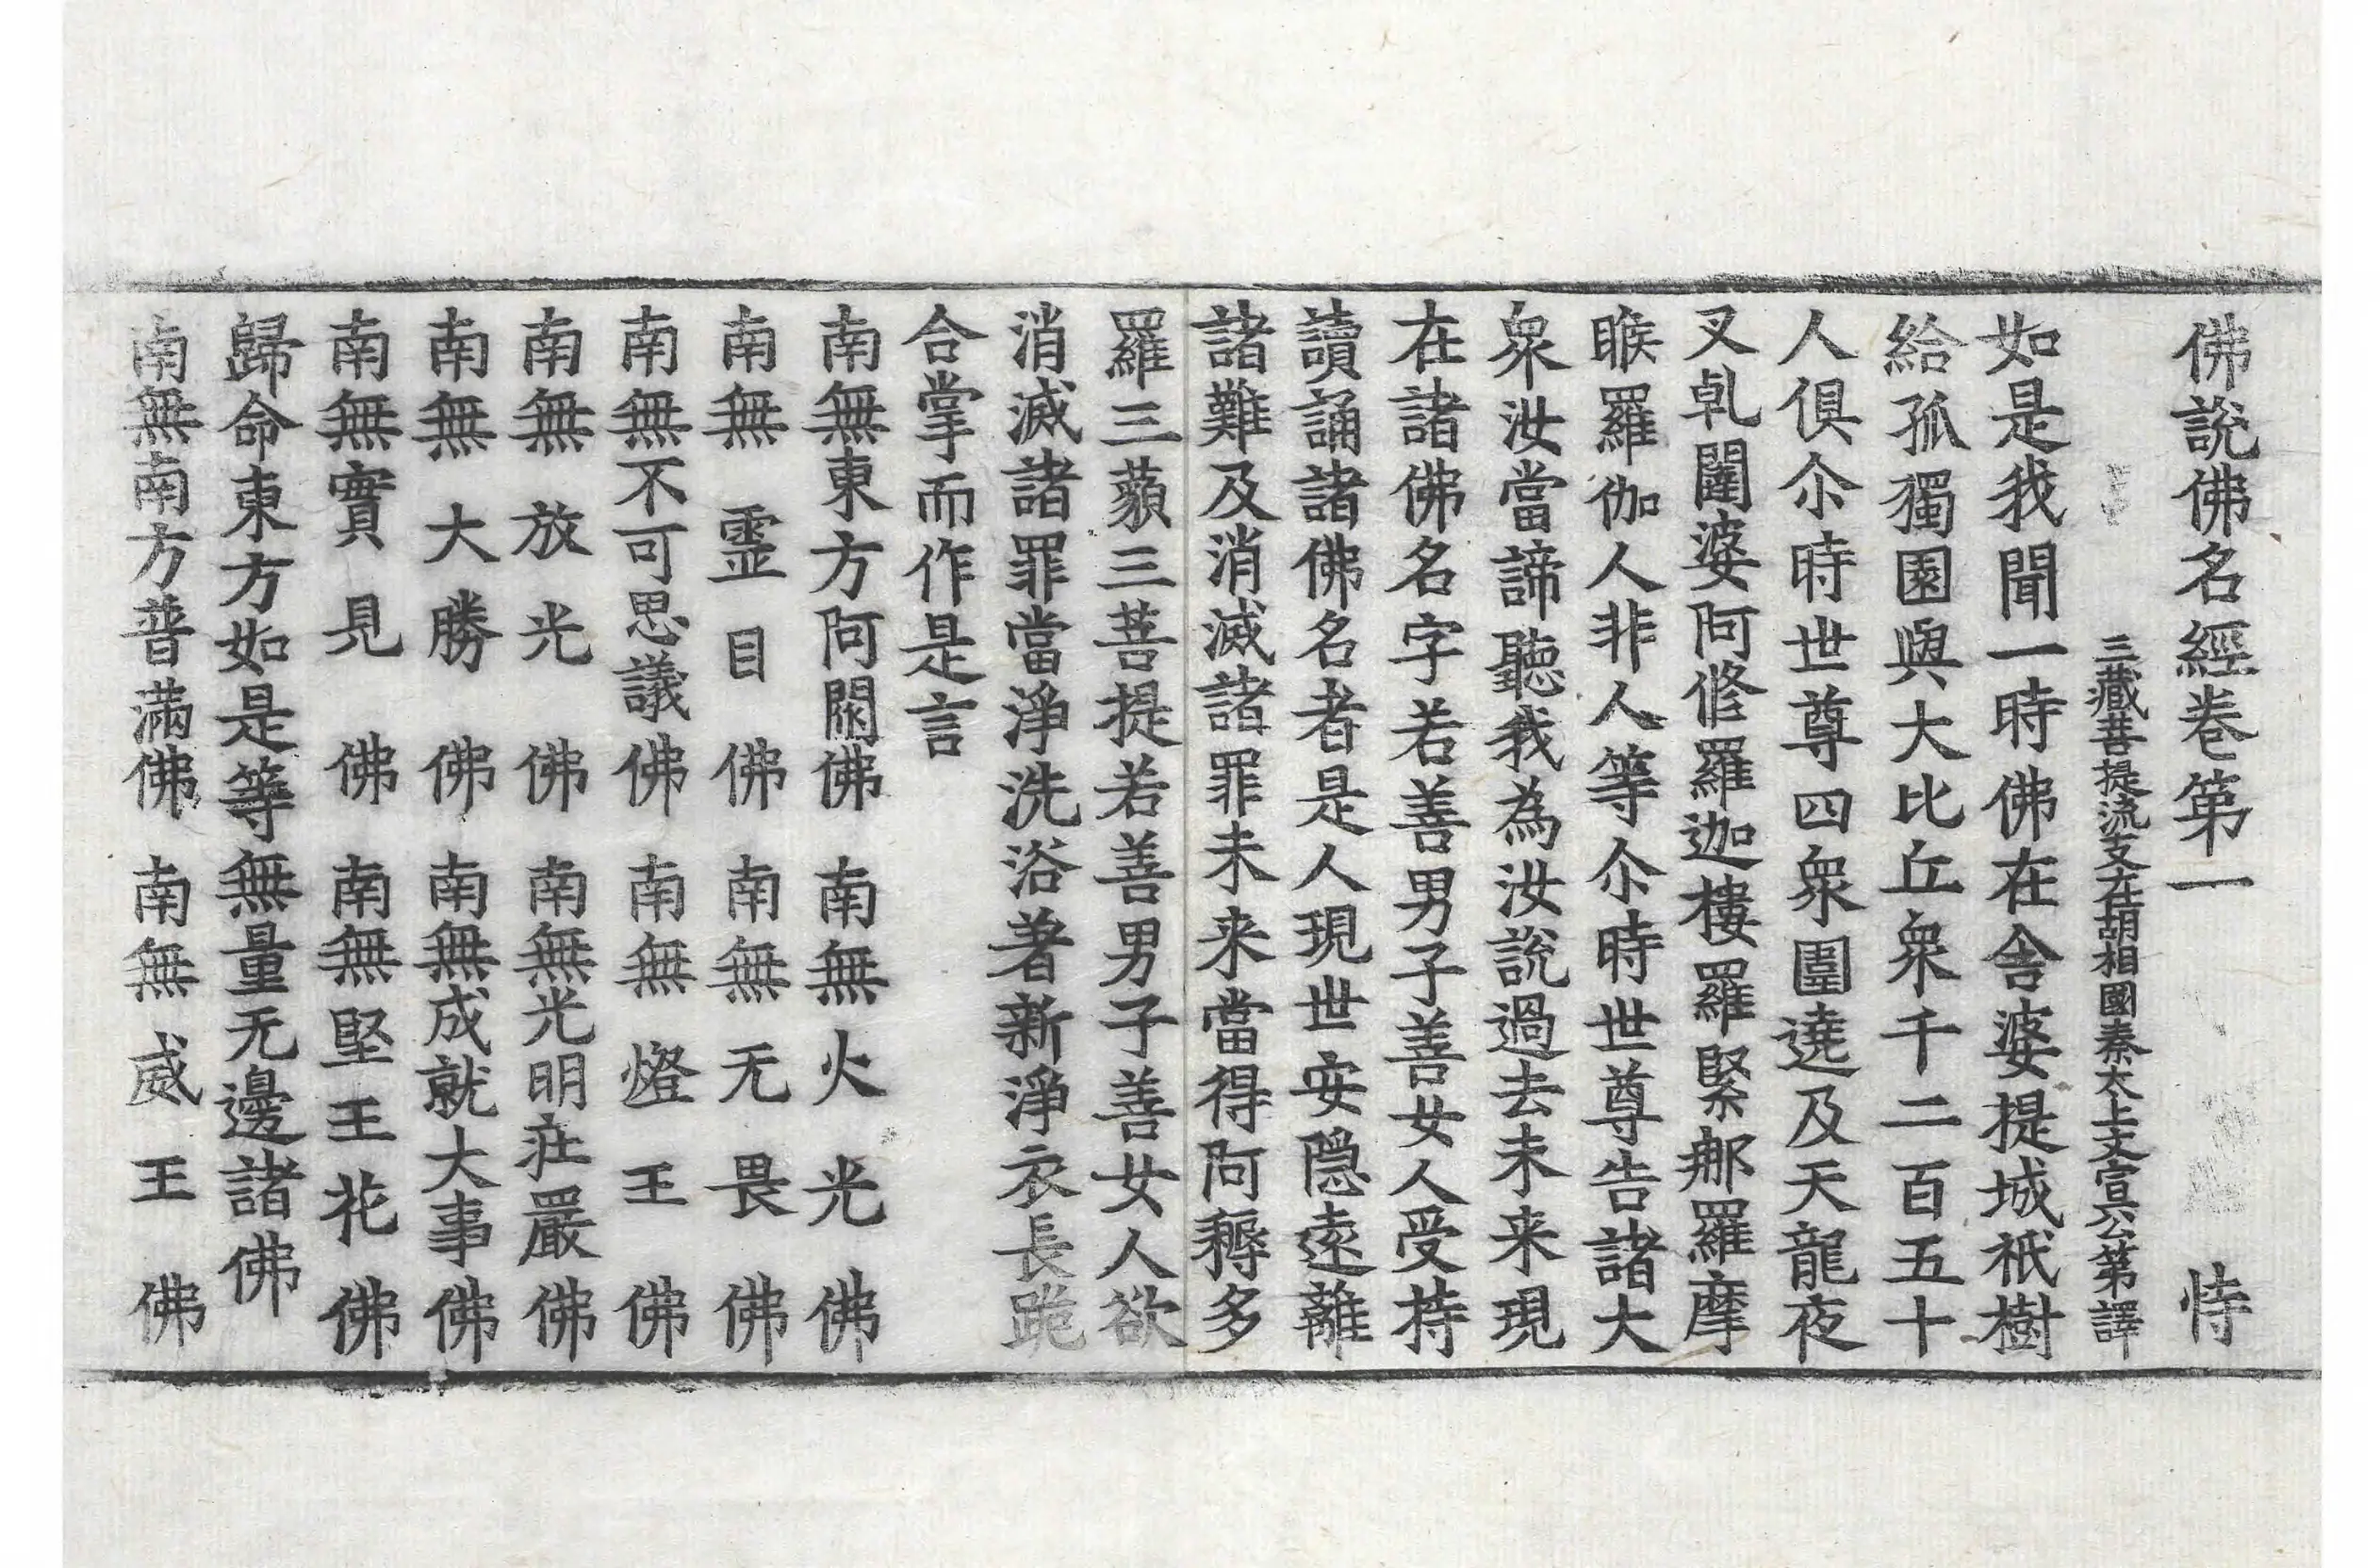 佛說佛名經卷第一 恃
三藏菩提流支在胡相國秦太上文宣公第譯
如是我聞一時佛在舍婆提城祇樹
給孤獨園與大比丘衆千二百五十
人俱尒時世尊四衆圍遶及天龍夜
叉乹闥婆阿修羅迦樓羅緊那羅摩
睺羅伽人非人等尒時世尊告諸大
衆汝當諦聽我為汝說過去未来現
在諸佛名字若善男子善女人受持
讀誦諸佛名者是人現世安隱遠離
諸難及消滅諸罪未来當得阿耨多
羅三藐三菩提若善男子善女人欲
消滅諸罪當淨洗浴著新淨衣長跪
合掌而作是言
南無東方阿閦佛 南無火光佛
南無霊目佛 南無无畏佛
南無不可思議佛 南無燈王佛
南無放光佛 南無光明莊嚴佛
南無大勝佛 南無成就大事佛
南無實見佛 南無堅王花佛
歸命東方如是等無量无邊諸佛
南無南方普滿佛 南無威王佛